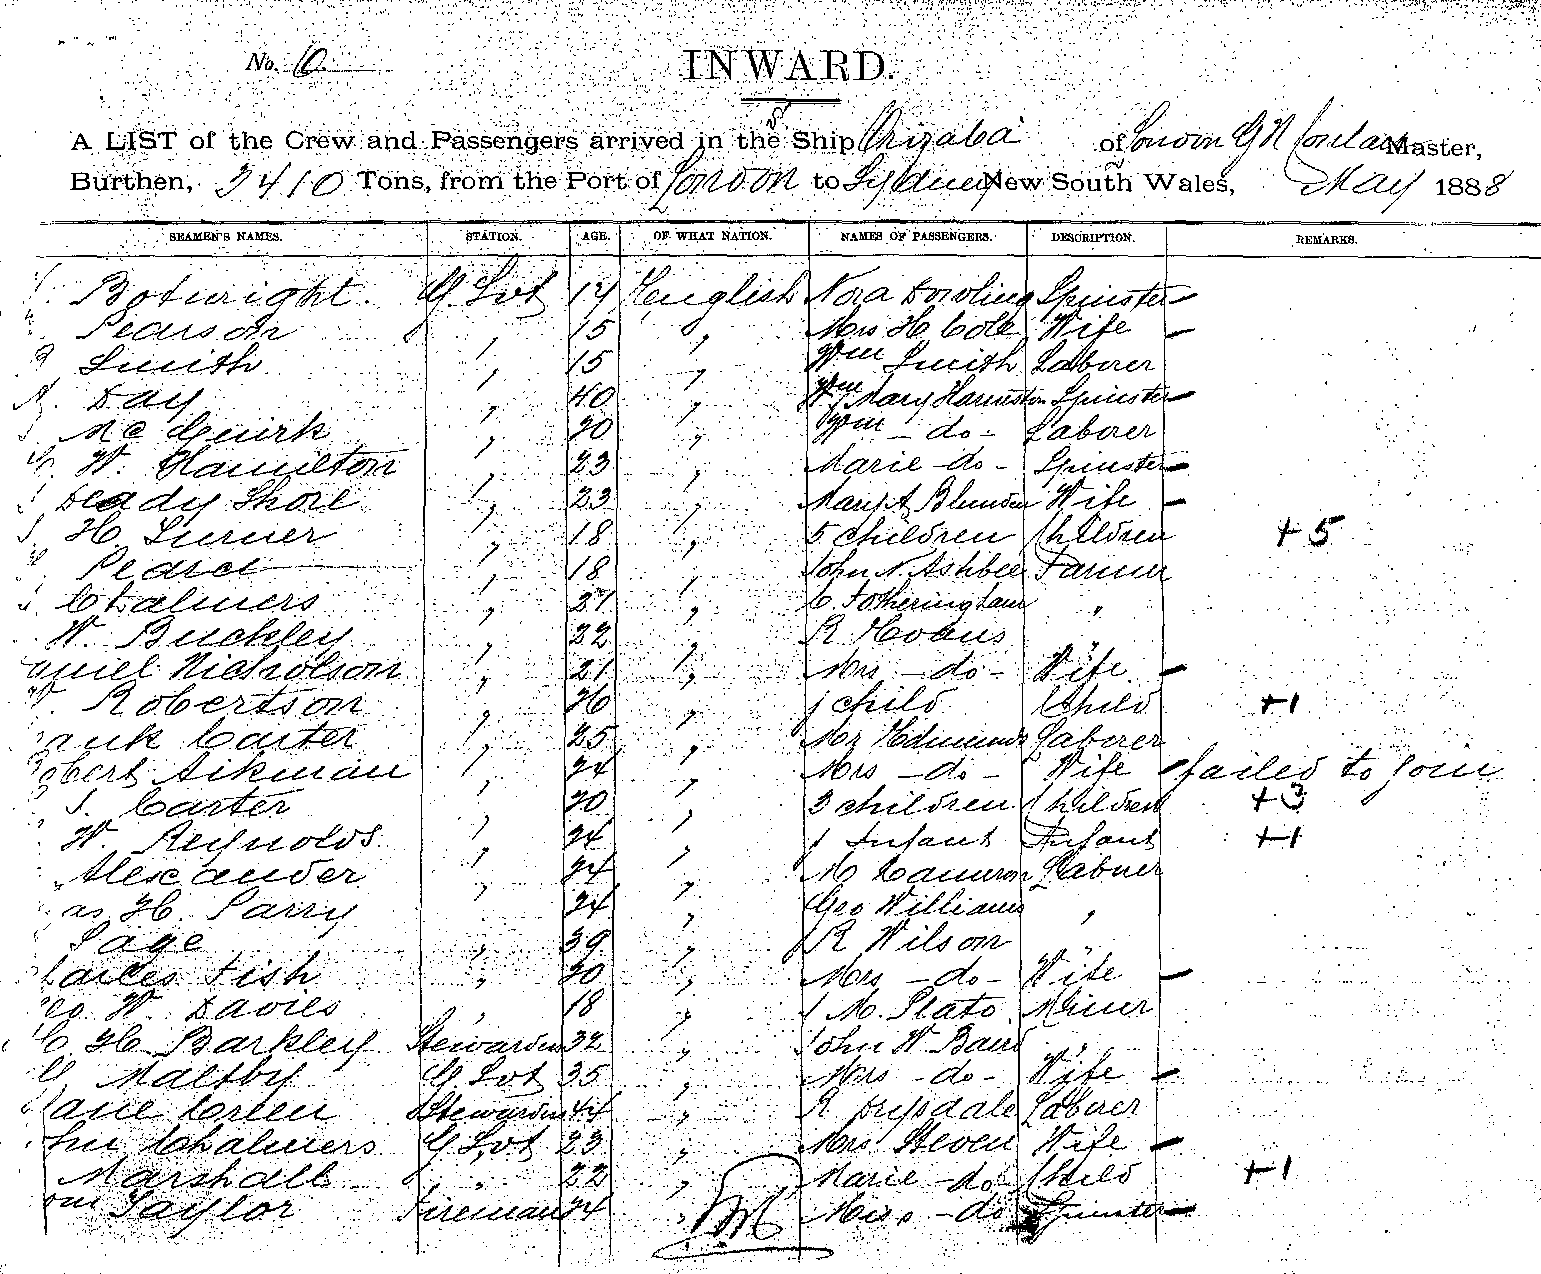 No. 6
INWARD.
A LIST of the Crew and Passengers arrived in the Ship Orizaba of London G N Master,
Burthen, 2410 Tons, from the Port of London to Sydney New South Wales, May 1888
SEAMEN'S NAMES. STATION. AGE. OF WHAT NATION. NAMES OF PASSENGERS. DESCRIPTION. REMARKS.
Botwright. G Svt 17 English Nora Dowling Spinster
Pearson " 15 " Mrs H Cole Wife
Smith " 15 " Wm Smith Laborer
Day " 40 " Mary Spinster
Mc Guirk " 20 " Wm - do - Laborer
W. Hamilton " 23 " Marie - do - Spinster
Deady Shore " 23 " Mary A Blunden Wife
H. Turner " 18 " 5 children Children +5
Pearce " 18 " John N Ashbee Farmer
Chalmers " 27 " C. Fotheringham "
W. Buckley " 22 " R Evans "
Nicholson " 21 " Mrs - do - Wife
Robertson " 26 " 1 child Child +1
Carter " 25 " Mr Edmunds Laborer
Aikman " 24 " Mrs - do - Wife failed to join
J. Carter " 20 " 3 children Children +3
W. Reynolds " 24 " 1 Infant Infant +1
Alexander " 24 " M Cameron Laborer
as H. Parry 24 " Geo Williams "
Page " 39 " R Wilson "
Fish " 20 " Mrs - do - Wife
W. Davies " 18 " M. Plato Miner
C. H. Barkley Steward 32 " John W Baird "
G Maltby G Svt 35 " Mrs - do - Wife
Jane Green Stewardess 44 " R Drysdale Laborer
Chalmers G Svt 23 " Mrs Steven Wife
Marshall " 22 " Marie - do Child +1
Taylor Fireman 24 " Miss - do Spinster